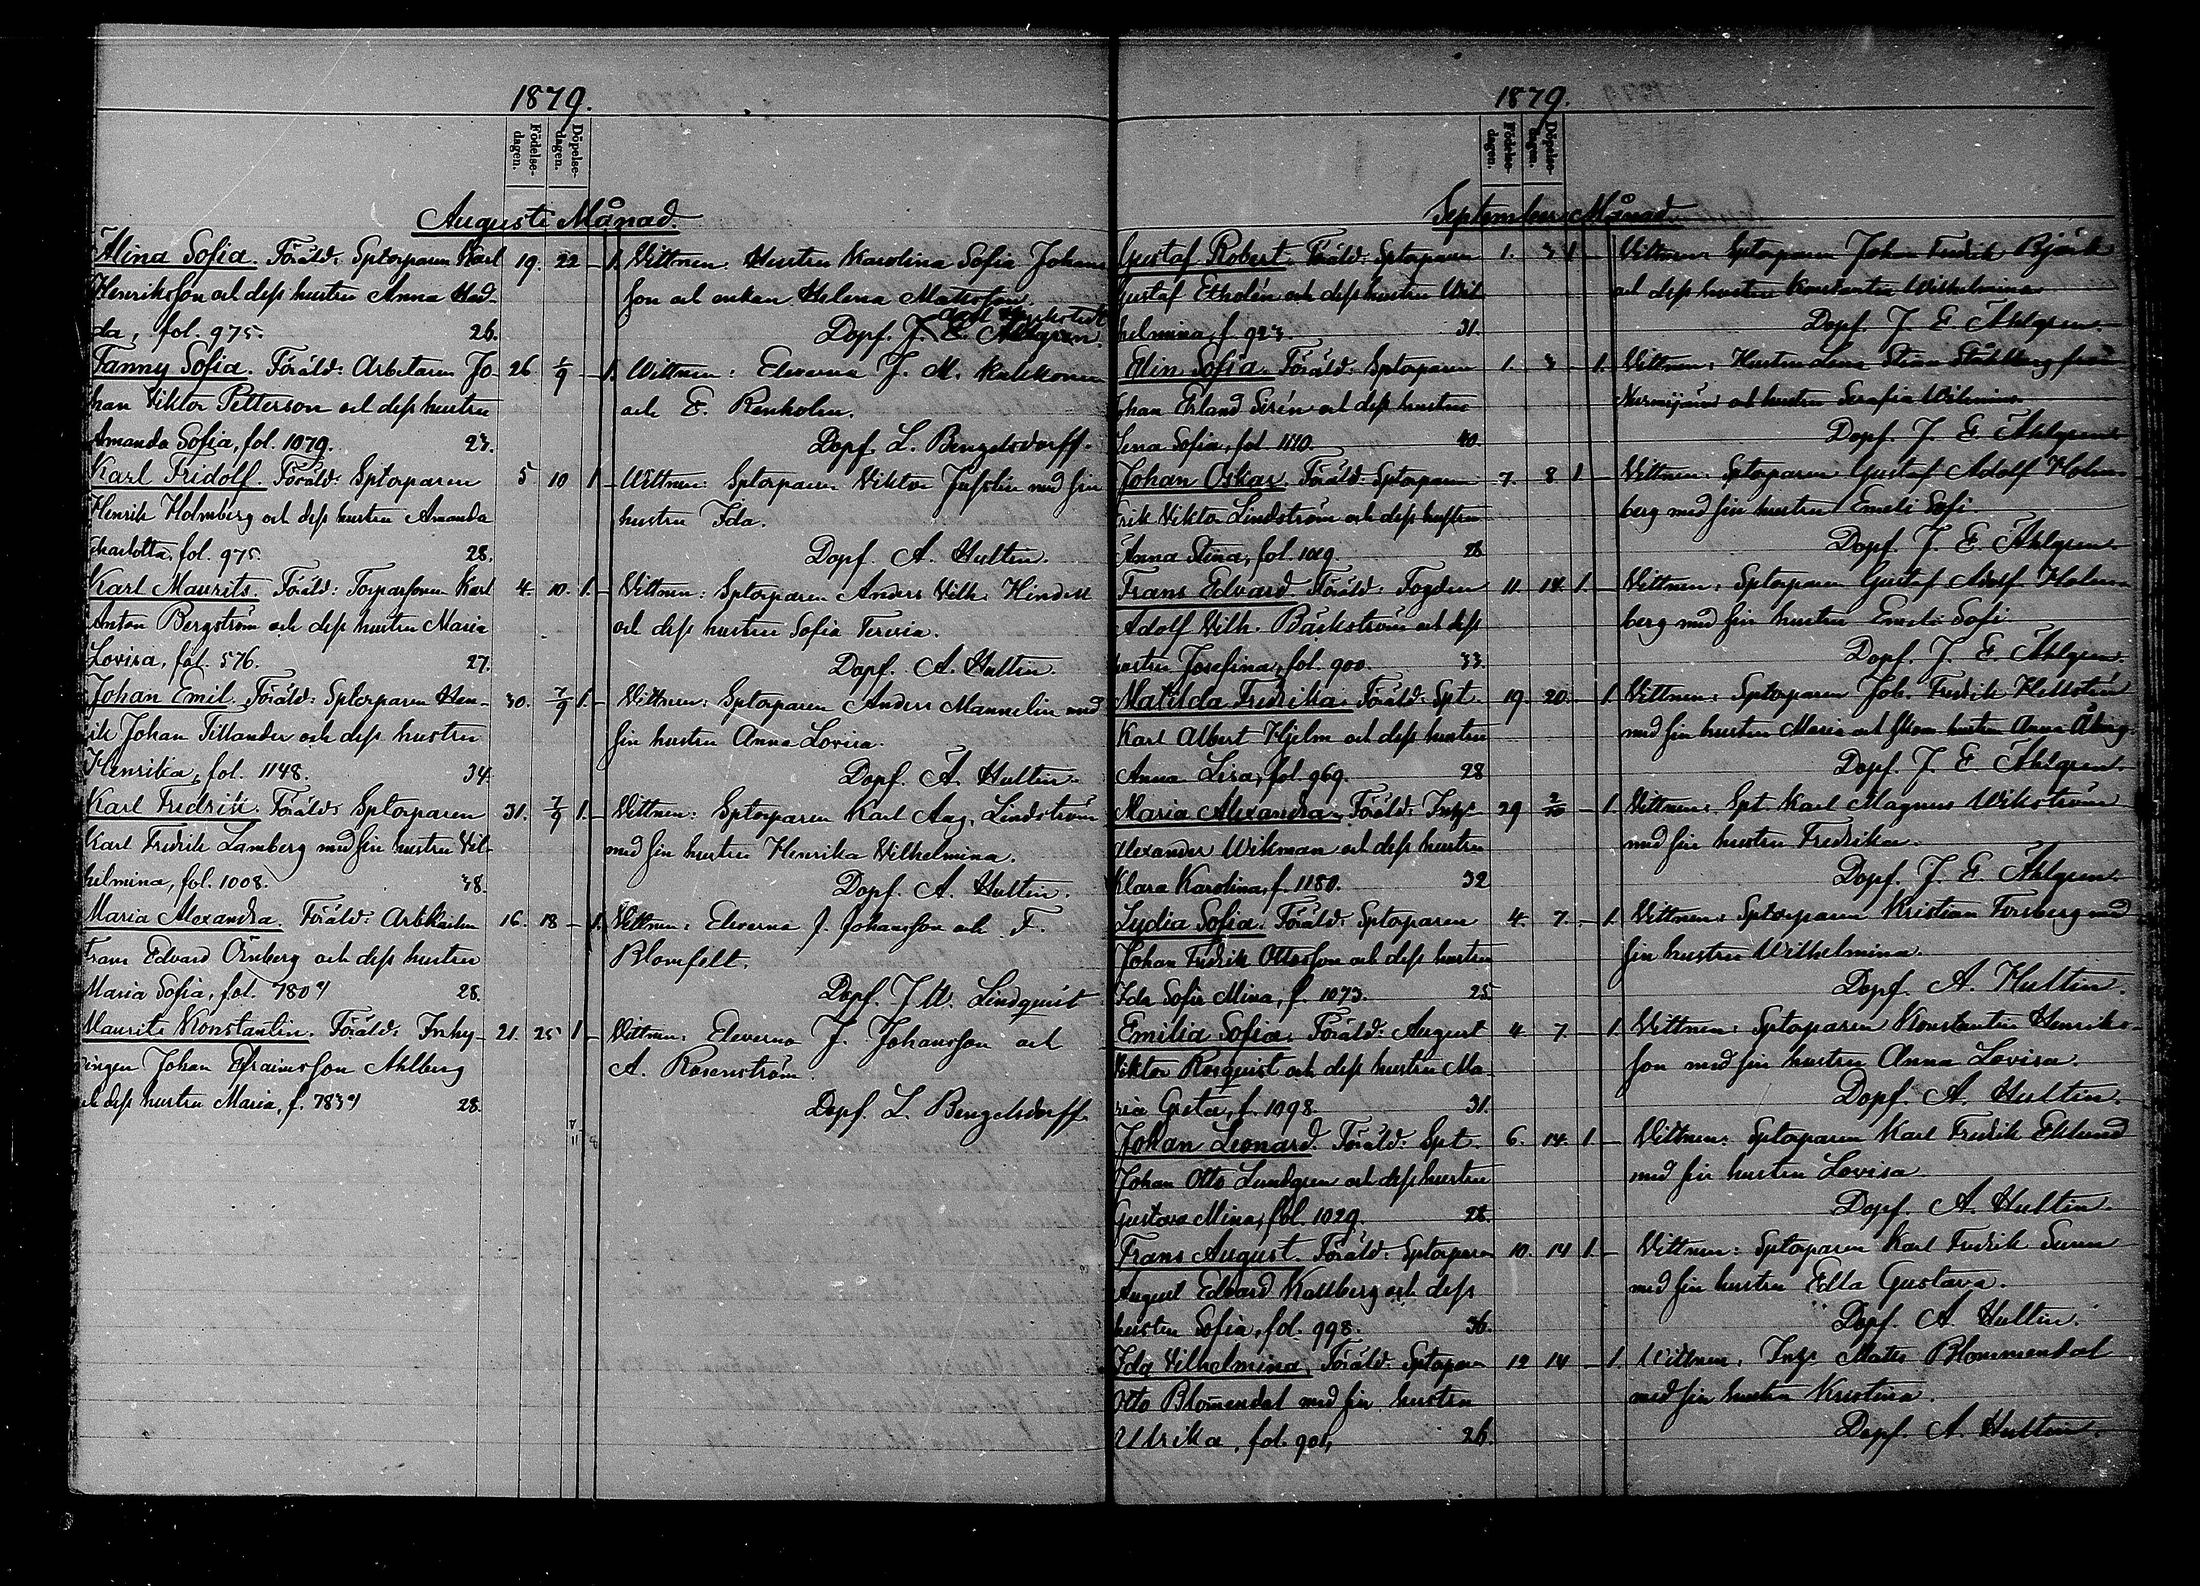 1879.
Födelse-dagen.
Döpelse-dagen.
Augusti Månad.
Alina Sofia. Föräld: Sptorparen Karl 19. 22 - 1. Vittnen: Hustru Karolina Sofia Johans
Henriksson och dess hustru Anna Had- son och enkan Helena Matsson.
da, fol. 975. 26. Dopf. J. E. Ahlgren.
Fanny Sofia. Föräld: Arbetaren Jo- 26. 1/9 - 1. Wittnen: Eleverna J. M.
han Viktor Petterson och dess hustru och E. Renholm.
Amanda Sofia, fol. 1079. 23. Dopf. L. Bengelsdorff.
Karl Fridolf. Föräld: Sptorparen 5 10 1. - Wittnen: Sptorparen Viktor med sin
Henrik Holmberg och dess hustru Amanda hustru Ida.
Charlotta, fol. 975. 28. Dopf. A. Hultin.
Karl Maurits. Föräld: Torparsonen Karl 4. 10. 1. - Vittnen: Sptorparen Anders Vilh. Hindell
Anton Bergström och dess hustru Maria och dess hustru Sofia Teresia.
Lovisa, fol. 576. 27. Dopf. A. Hultin.
Johan Emil. Föräld: Sptorparen Hen- 30. 7/9 1. - Vittnen: Sptorparen Anders Mannelin med
rik Johan Tillander och dess hustru sin hustru Anna Lovisa.
Henrika, fol. 1148. 34. Dopf. A. Hultin.
Karl Fredrik. Föräld: Sptorparen 31. 7/9 1. - Vittnen: Sptorparen Karl Aug. Lindström
Karl Fredrik Lamberg med sin hustru Vil- med sin hustru Henrika Vilhelmina.
helmina, fol. 1008. 38. Dopf. A. Hultin.
Maria Alexandra. Föräld: 16. 18 - 1. Vittnen: Eleverna J. Johansson och F.
Frans Edvard Örnberg och dess hustru Blomfelt.
Maria Sofia, fol. 28. Dopf. J. W. Lindquist
Maurits Konstantin. Föräld: Inhy- 21. 25 1 - Vittnen: Eleverna J. Johansson och
singen Johan Efraimsson Ahlberg A. Rosenström.
och dess hustru Maria, f. 28. Dopf. L. Bengelsdorff.
1879.
Födelse-dagen.
Döpelse-dagen.
September Månad.
Gustaf Robert. Föräld: Sptorparen 1. 3 1 - Vittnen: Sptorparen Johan Fredrik Björk
Gustaf Etholén och dess hustru Wil- och dess hustru Konstantia Wilhelmina.
helmina, f. 923. 31. Dopf. J. E. Ahlgren.
Elin Sofia. Föräld: Sptorparen 1. 3 - 1. Vittnen: Hustru Lena Stina Ståhlberg från
Johan Erland Sirén och dess hustru Nurmijärvi och hustru Serafia Wilmina.
Lena Sofia, fol. 1110. 40. Dopf. J. E. Ahlgren.
Johan Oskar. Föräld: Sptorparen 7. 8 1 - Vittnen: Sptorparen Gustaf Adolf Holm-
Erik Viktor Lindström och dess hustru berg med sin hustru Emeli Sofi.
Anna Stina, fol. 1029. 28 Dopf. J. E. Ahlgren.
Frans Edvard. Föräld: Fogden 11. 14. 1. - Vittnen: Sptorparen Gustaf Adolf Holm-
Adolf Vilh. Bäckström och dess berg med sin hustru Emeli Sofi.
hustru Josefina, fol. 900. 33. Dopf. J. E. Ahlgren.
Matilda Fredrika. Föräld: Spt. 19. 20. - 1. Vittnen: Sptorparen Joh. Fredrik Hellstén
Karl Albert Hjelm och dess hustru med sin hustru Maria och hustru Anna Åberg.
Anna Lisa, fol. 969. 28 Dopf. J. E. Ahlgren.
Maria Alexandra. Föräld: Inhys 29 2/10 - 1. Vittnen: Spt. Karl Magnus Wikström
Alexander Wikman och dess hustru med sin hustru Fredrika.
Klara Karolina, f. 1180. 32 Dopf. J. E. Ahlgren.
Lydia Sofia. Föräld: Sptorparen 4. 7. - 1. Vittnen: Sptorparen Kristian Forsberg med
Johan Fredrik Ottosson och dess hustru sin hustru Wilhelmina.
Ida Sofia Mina, f. 1073. 25 Dopf. A. Hultin.
Emilia Sofia. Föräld: August 4. 7. - 1. Vittnen: Sptorparen Konstantin Henriks-
Viktor Rosquist och dess hustru Ma- son med sin hustru Anna Lovisa.
ria Greta, f. 1098. 31. Dopf. A. Hultin.
Johan Leonard. Föräld: Spt. 6. 14. 1. - Vittnen: Sptorparen Karl Fredrik Eklund
Johan Otto Lundgren och dess hustru med sin hustru Lovisa.
Gustava Mina, fol. 1029. 28. Dopf. A. Hultin.
Frans August. Föräld: Sptorparen 10. 14 1. - Vittnen: Sptorparen Karl Fredrik
August Edvard Kallberg och dess med sin hustru Edla Gustava.
hustru Sofia, fol. 998. 36. Dopf. A. Hultin.
Ida Vilhelmina. Föräld: Sptorparen 12 14 - 1. Vittnen: Inhys Mats Blommendal
Otto Blomendal med sin hustru med sin hustru Kristina.
Ulrika, fol. 901, 26. Dopf. A. Hultin.